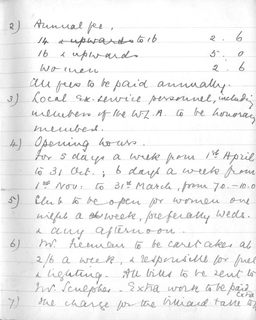 2) Annual fee.
14 & upwards to 16 2. 6
16 & upwards 5. 0
Women 2. 6
All fees to be paid annually.
3) Local Ex-service personnel, including
members of the W.L.A. to be honorary
members.
4) Opening hours.
For 5 days a week from 1st April
to 31 Oct.; 6 days a week from
1st Nov. to 31st March, from 7.0 - 10.0
5) Club to be open for women one
night a week, preferably Weds.
& any afternoon.
6) Mr. to be caretaker at
2/6 a week, & responsible for fuel
& lighting. All bills to be sent to
Mr. Extra work to be paid
extra
7) The charge for the billiard table